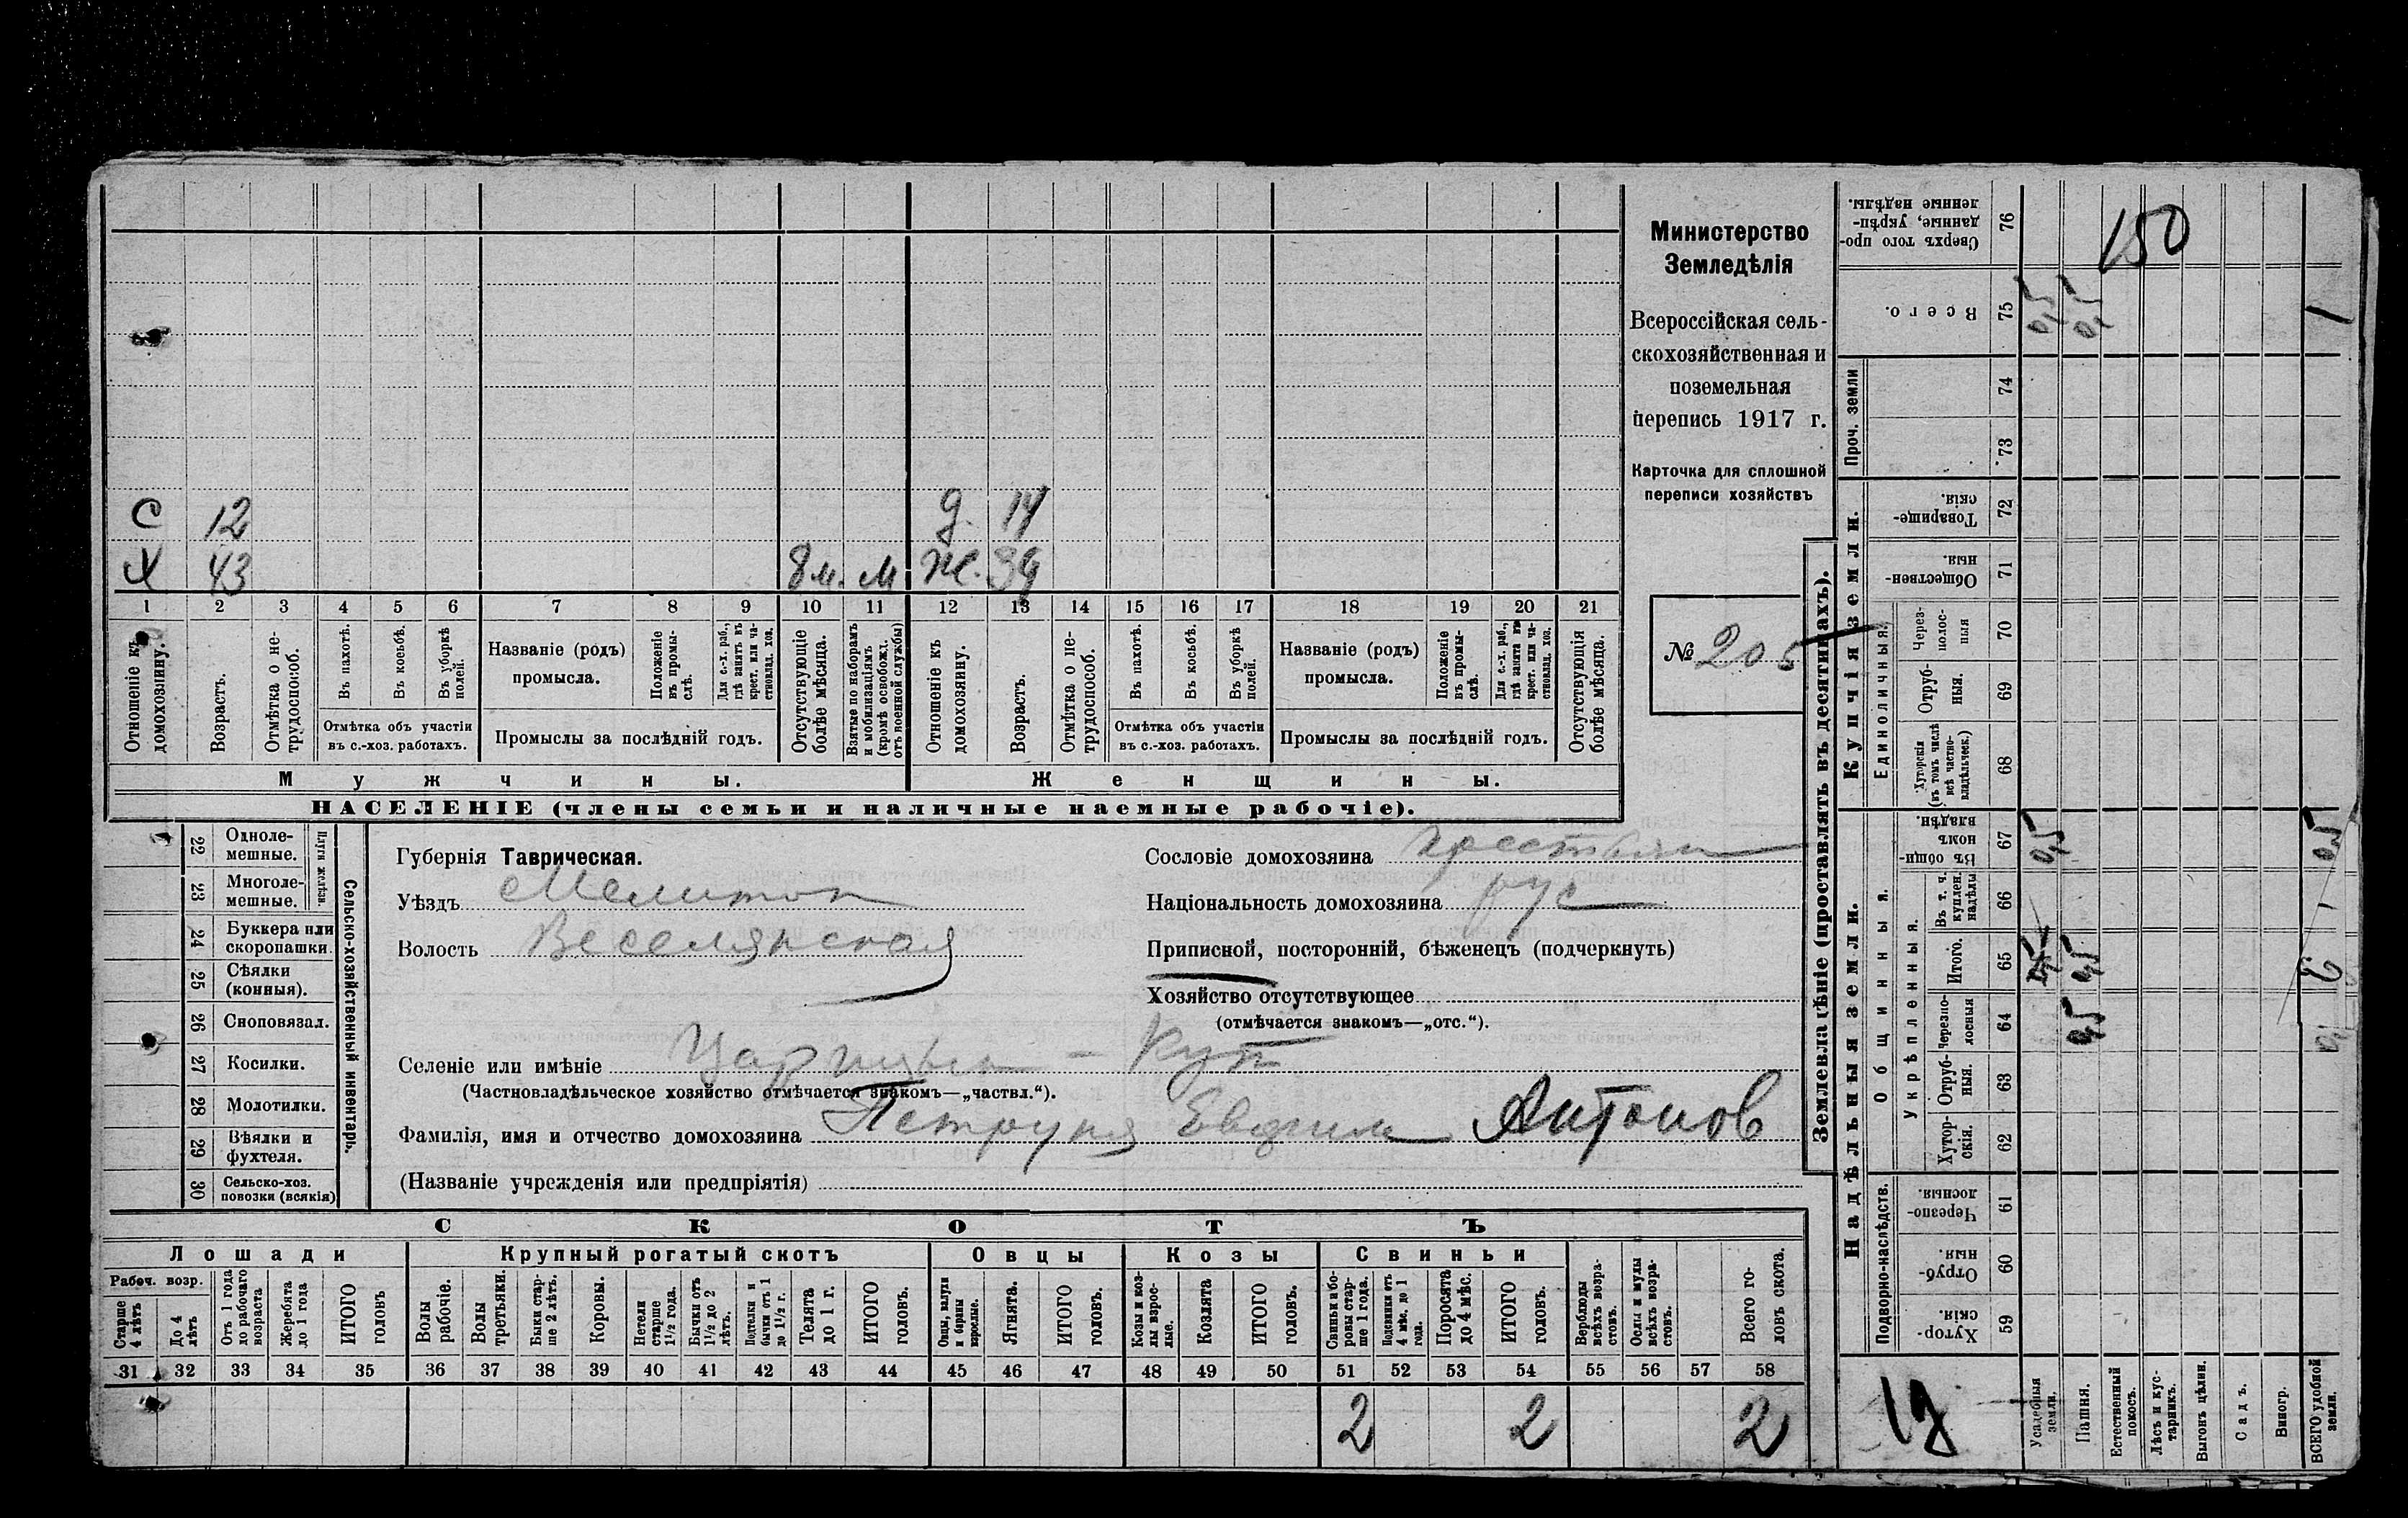 С 12 д. 14
Х 43 8 м. м Ж. 39
1 2 3 4 5 6 7 8 9 10 11 12 13 14 15 16 17 18 19 20 21
Отношеніе къ домохозяину.
Возрастъ.
Отмѣтка о не-трудоспособ.
Въ пахотѣ.
Въ косьбѣ.
Въ уборкѣ полей.
Отмѣтка объ участіи
въ с.-хоз. работахъ.
Названіе (родъ)
промысла.
Положеніе въ промы-слѣ.
Для с.-х. раб., гдѣ занятъ въ крест. или ча-стновлад. хоз.
Промыслы за послѣдній годъ.
Отсутствующіе болѣе мѣсяца.
Взятые по наборамъ и мобилизаціямъ (кромѣ освобожд. отъ военной службы)
Отношеніе къ домохозяину.
Возрастъ.
Отмѣтка о не-трудоспособ.
Въ пахотѣ.
Въ косьбѣ.
Въ уборкѣ полей.
Отмѣтка объ участіи
въ с.-хоз. работахъ.
Названіе (родъ)
промысла.
Положеніе въ промы-слѣ.
Для с.-х. раб., гдѣ занята въ крест. или ча-стновлад. хоз.
Промыслы за послѣдній годъ.
Отсутствующія болѣе мѣсяца.
Мужчины.
Женщины.
НАСЕЛЕНІЕ (члены семьи и наличные наемные рабочіе).
Министерство
Земледѣлія
Всероссійская сель-
скохозяйственная и
поземельная
перепись 1917 г.
Карточка для сплошной
переписи хозяйствъ
№ 205
22 Одноле-мешные.
23 Многоле-мешные.
Плуги желѣзн.
24 Буккера или скоропашки.
25 Сѣялки (конныя).
26 Сноповязал.
27 Косилки.
28 Молотилки.
29 Вѣялки и фухтеля.
30 Сельско-хоз. повозки (всякія)
Сельско-хозяйственный инвентарь.
Губернія Таврическая.
Уѣздъ Мелитоп
Волость Веселянская
Сословіе домохозяина крестьян
Національность домохозяина рус
Приписной, посторонній, бѣженецъ (подчеркнуть)
Хозяйство отсутствующее
(отмѣчается знакомъ—„отс.“).
Селеніе или имѣніе Царицын - Кут
(Частновладѣльческое хозяйство отмѣчается знакомъ—„частвл.“).
Фамилія, имя и отчество домохозяина Антонов
(Названіе учрежденія или предпріятія)
СКОТЪ
Лошади
Крупный рогатый скотъ
Овцы
Козы
Свиньи
Рабоч. возр.
Старше 4 лѣтъ
До 4 лѣтъ
Отъ 1 года до рабочаго возраста
Жеребята до 1 года
ИТОГО головъ
Волы рабочіе.
Волы третьяки.
Быки стар-ше 2 лѣтъ.
Коровы.
Нетели старше 1½ года.
Бычки отъ 1½ до 2 лѣтъ.
Подтелки и бычки отъ 1 до 1½ г.
Телята до 1 г.
ИТОГО головъ.
Овцы, валухи и бараны взрослые.
Ягнята.
ИТОГО головъ.
Козы и коз-лы взрос-лые.
Козлята
ИТОГО головъ.
Свиньи и бо-ровы стар-ше 1 года.
Подсвинки отъ 4 мѣс. до 1 года.
Поросята до 4 мѣс.
ИТОГО головъ.
Верблюды всѣхъ возра-стовъ.
Ослы и мулы всѣхъ возра-стовъ.
Всего го-ловъ скота.
31 32 33 34 35 36 37 38 39 40 41 42 43 44 45 46 47 48 49 50 51 52 53 54 55 56 57 58
2 2 2
Землевладѣніе (проставлять въ десятинахъ).
Сверхъ того про-данные, укрѣп-ленные надѣлы. 76 150
Всего. 75 0,5 0,5 1
Проч. земли
74
73
Купчія земли.
Товарище-скія. 72
Обществен-ныя 71
Единоличныя.
Через-полос-ныя 70
Отруб-ныя. 69
Хуторскія (въ томъ числѣ всѣ частно-владѣльческ.) 68
Надѣльныя земли.
Общинныя.
Въ общин-номъ владѣн. 67 0,5 0,5
Укрѣпленныя.
Въ т. ч. куплен. надѣлы 66
Итого. 65 0,5
Черезпо-лосныя 64 0,5
Отруб-ныя. 63
Хутор-скія. 62
Подворно-наслѣдств.
Черезпо-лосныя. 61
Отруб-ныя. 60
Хутор-скія. 59
Усадебныя земли.
Пашня.
Естественный покосъ.
Лѣсъ и кус-тарникъ.
Выгонъ цѣлин.
Садъ.
Виногр.
ВСЕГО удобной земли.